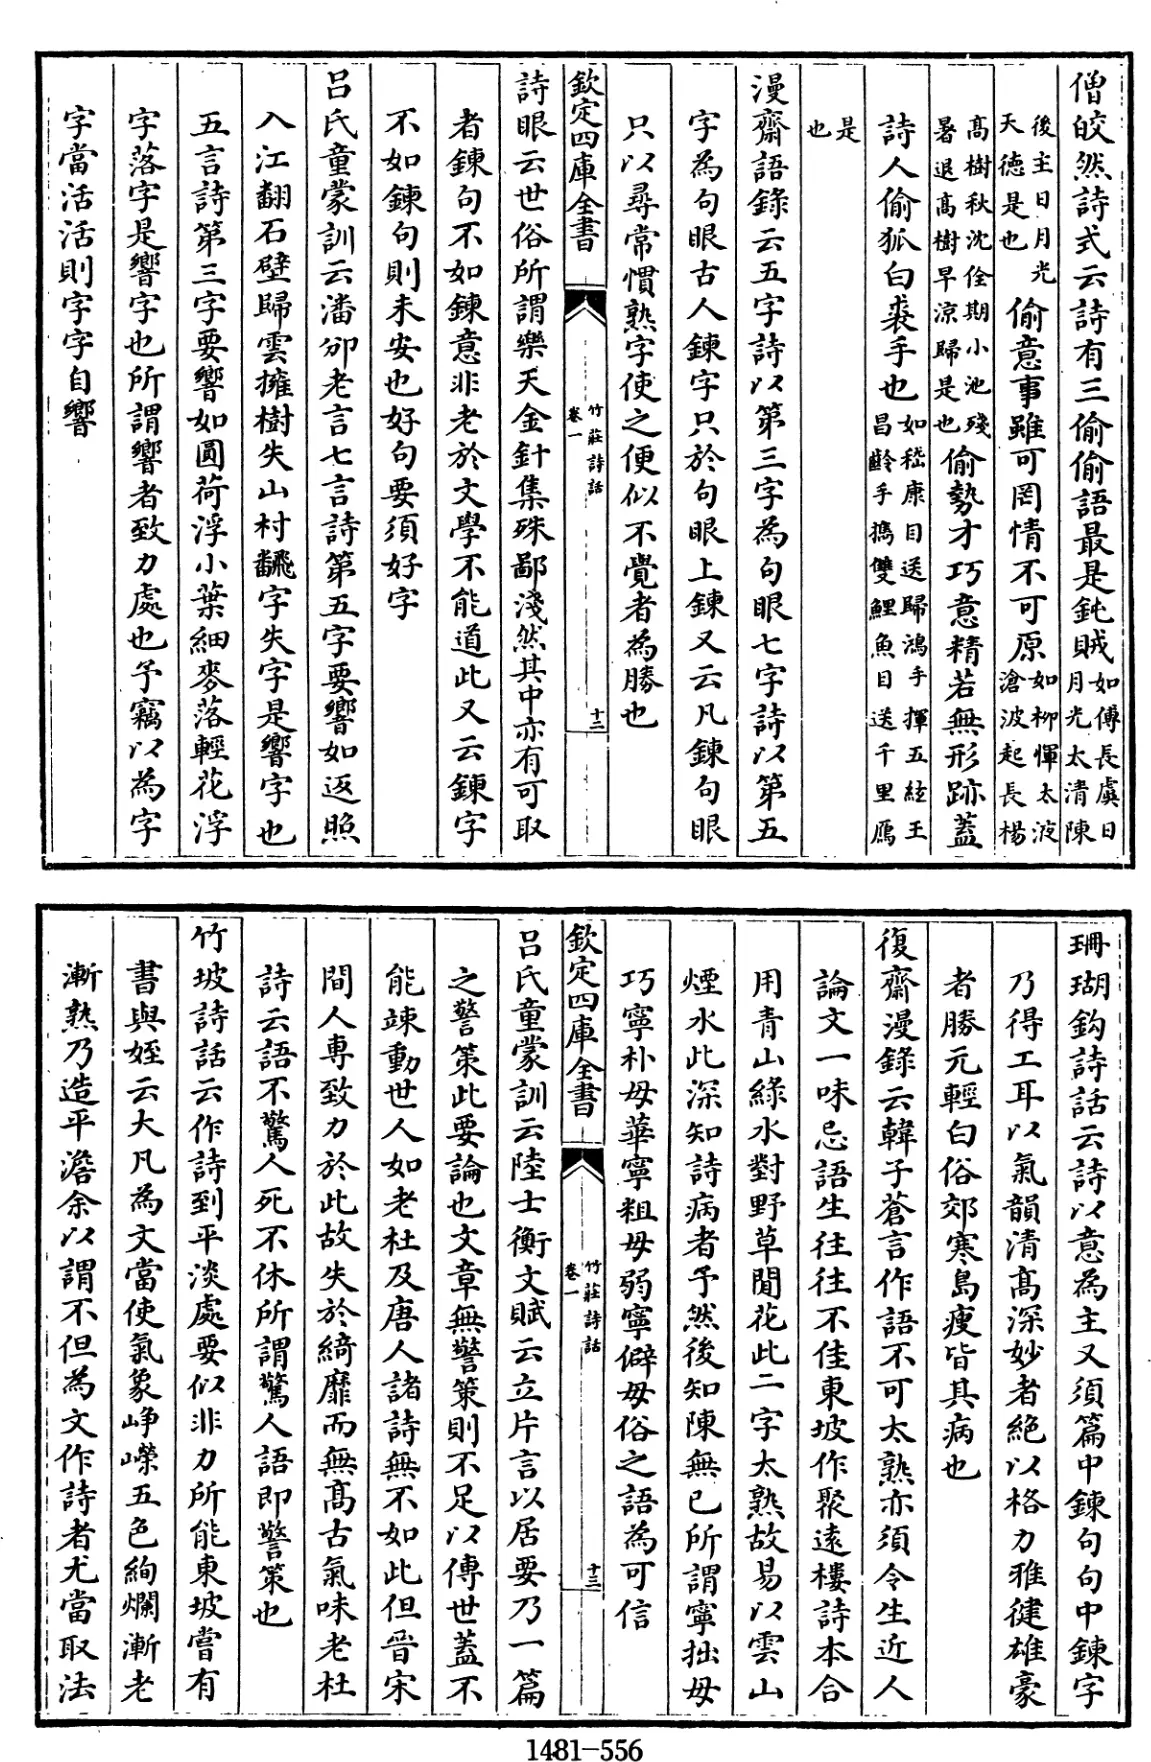 僧皎然詩式云詩有三偷偷語最是鈍賊如傅長虞日月光太清陳
後主日月光天德是也偷意事雖可罔情不可原如柳惲太液滄波起長楊
髙樹秋沈佺期小池殘暑退髙樹早涼歸是也偷勢才巧意精若無形跡蓋
詩人偷狐白裘手也如嵇康目送歸鴻手揮五絃王昌齡手攜雙鯉魚目送千里鴈
是也
漫齋語錄云五字詩以第三字為句眼七字詩以第五
字為句眼古人鍊字只於句眼上鍊又云凡鍊句眼
只以尋常慣熟字使之便似不覺者為勝也
欽定四庫全書 竹莊詩話 卷一 十二
詩眼云世俗所謂樂天金針集殊鄙淺然其中亦有可取
者鍊句不如鍊意非老於文學不能道此又云鍊字
不如鍊句則未安也好句要須好字
呂氏童蒙訓云潘邠老言七言詩第五字要響如返照
入江翻石壁歸雲擁樹失山村飜字失字是響字也
五言詩第三字要響如圓荷浮小葉細麥落輕花浮
字落字是響字也所謂響者致力處也予竊以為字
字當活活則字字自響
珊瑚鈎詩話云詩以意為主又須篇中鍊句句中鍊字
乃得工耳以氣韻清髙深妙者絶以格力雅健雄豪
者勝元輕白俗郊寒島瘦皆其病也
復齋漫錄云韓子蒼言作語不可太熟亦須令生近人
論文一味忌語生往往不佳東坡作聚遠樓詩本合
用青山綠水對野草閒花此二字太熟故易以雲山
煙水此深知詩病者予然後知陳無已所謂寧拙毋
巧寧朴毋華寧粗毋弱寧僻毋俗之語為可信
欽定四庫全書 竹莊詩話 卷一 十三
呂氏童蒙訓云陸士衡文賦云立片言以居要乃一篇
之警策此要論也文章無警策則不足以傳世蓋不
能竦動世人如老杜及唐人諸詩無不如此但晉宋
間人專致力於此故失於綺靡而無髙古氣味老杜
詩云語不驚人死不休所謂驚人語即警策也
竹坡詩話云作詩到平淡處要似非力所能東坡嘗有
書與姪云大凡為文當使氣象崢嶸五色絢爛漸老
漸熟乃造平澹余以謂不但為文作詩者尤當取法
1481-556